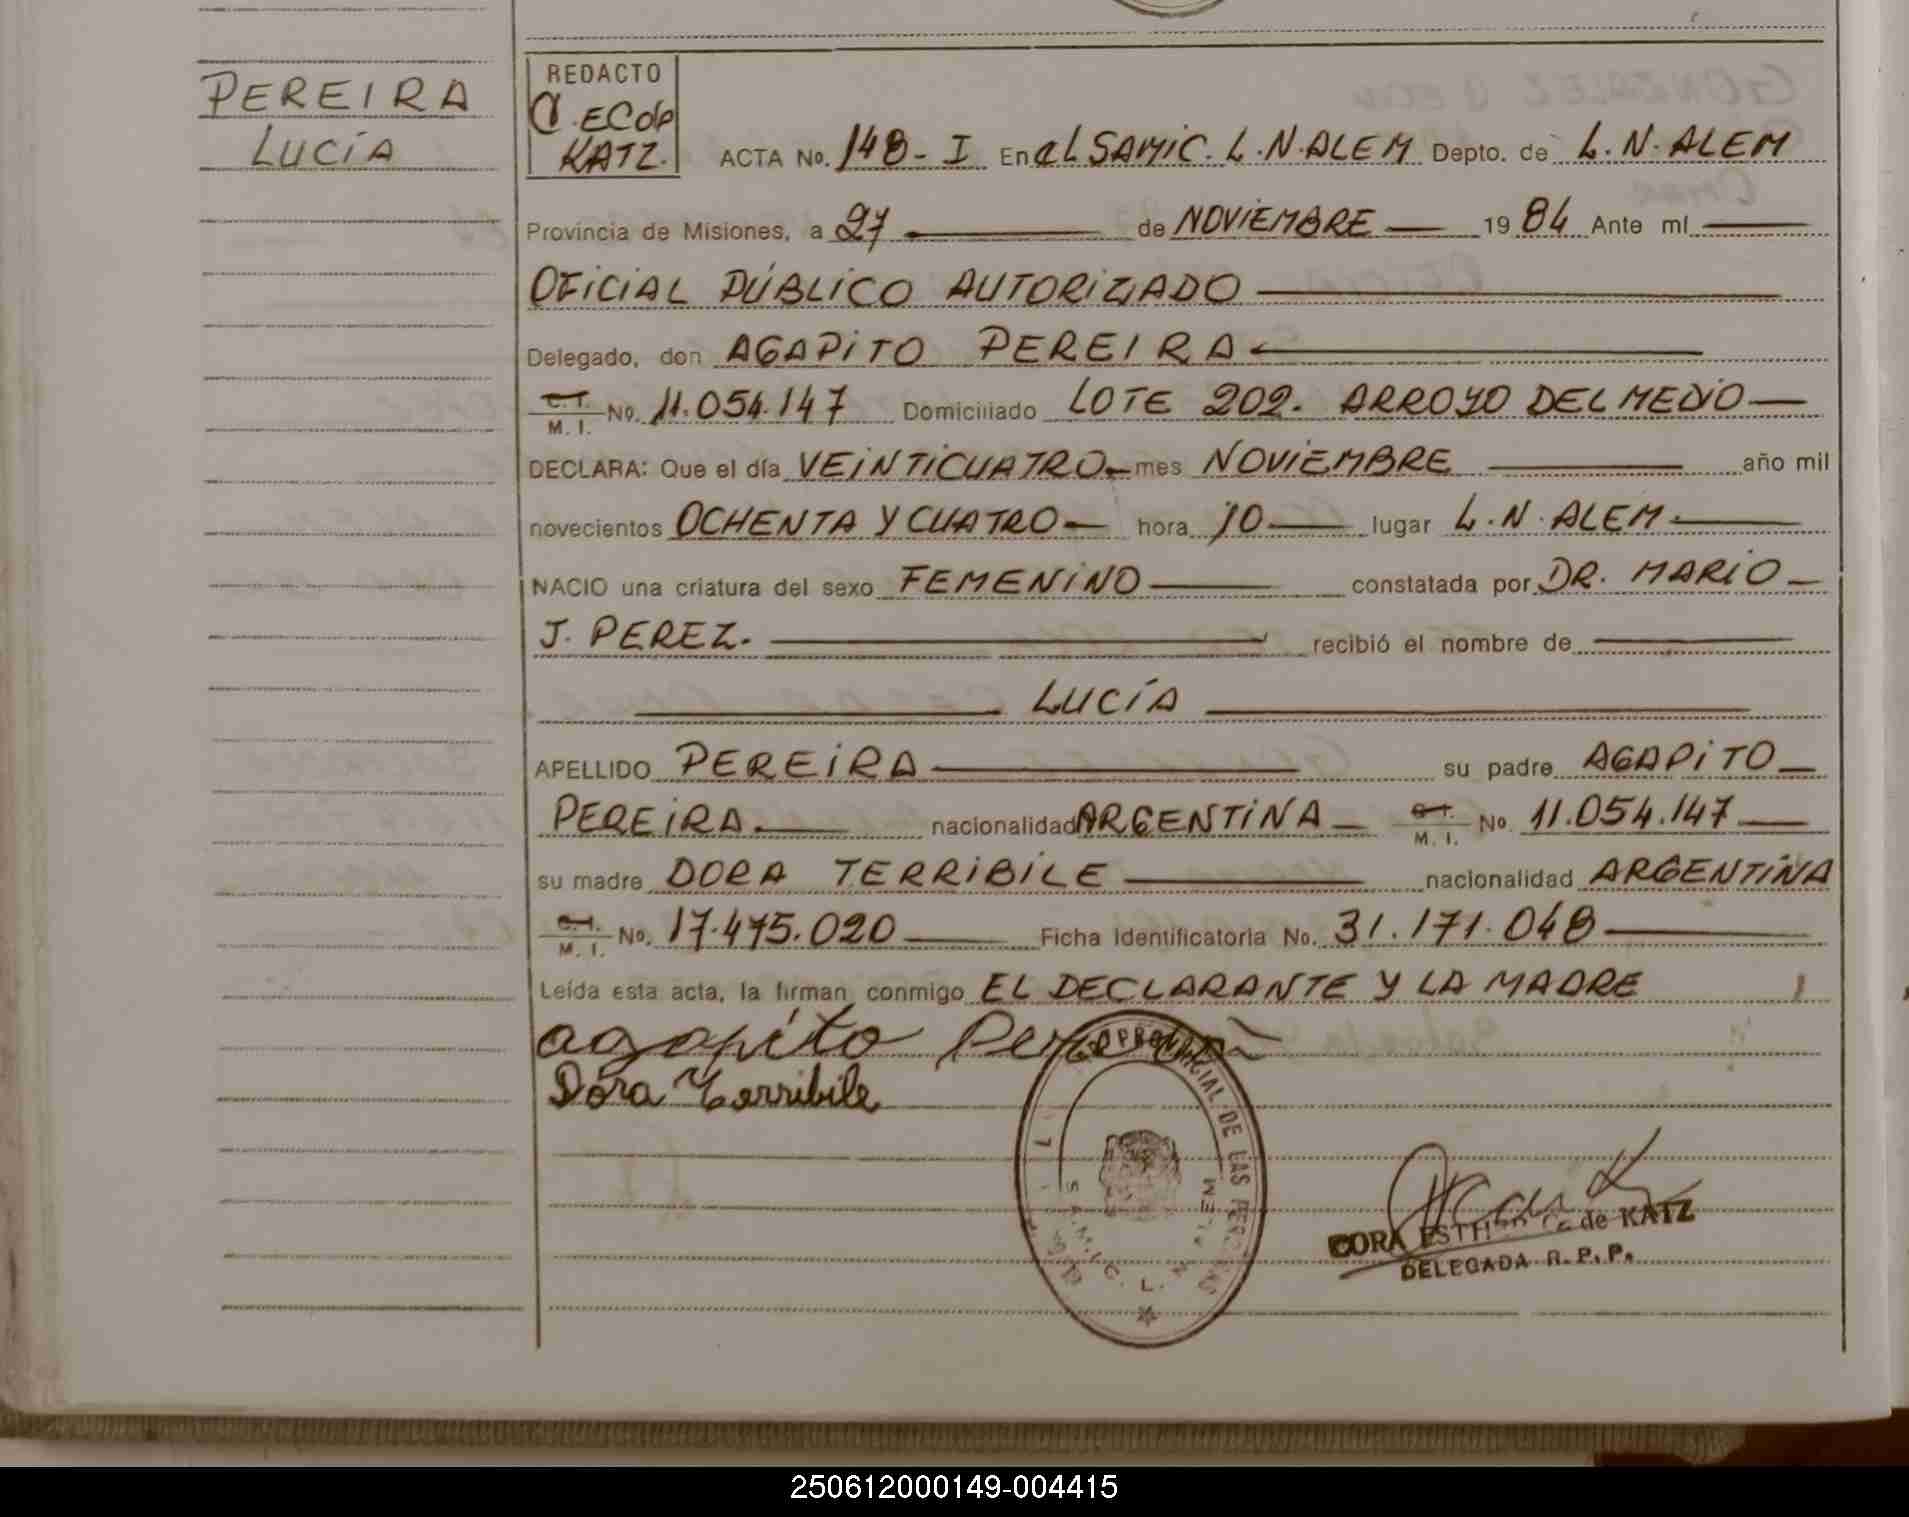 PEREIRA
LUCÍA
REDACTO
C. ECOP
KATZ.
ACTA No. 148-I En el SAMIC. L.N.ALEM Depto. de L.N.ALEM
Provincia de Misiones, a 27 de NOVIEMBRE 1984 Ante mí
OFICIAL PÚBLICO AUTORIZADO
Delegado, don AGAPITO PEREIRA
C.I. M.I. No. 11.054.147 Domiciliado LOTE 202. ARROYO DEL MEDIO
DECLARA: Que el día VEINTICUATRO mes NOVIEMBRE año mil
novecientos OCHENTA Y CUATRO hora 10 lugar L.N.ALEM.
NACIO una criatura del sexo FEMENINO constatada por DR. MARIO
J. PEREZ. recibió el nombre de
LUCÍA
APELLIDO PEREIRA su padre AGAPITO
PEREIRA nacionalidad ARGENTINA C.I. M.I. No. 11.054.147
su madre DORA TERRIBILE nacionalidad ARGENTINA
C.I. M.I. No. 17.475.020 Ficha Identificatoria No. 31.171.048
Leída esta acta, la firman conmigo EL DECLARANTE Y LA MADRE
agapito Pereira
Dora Terribile
PROVINCIAL DE LAS PERSONAS
S.A.M.I.C. L. N. ALEM
de KATZ
DELEGADA R.P.P.
250612000149-004415